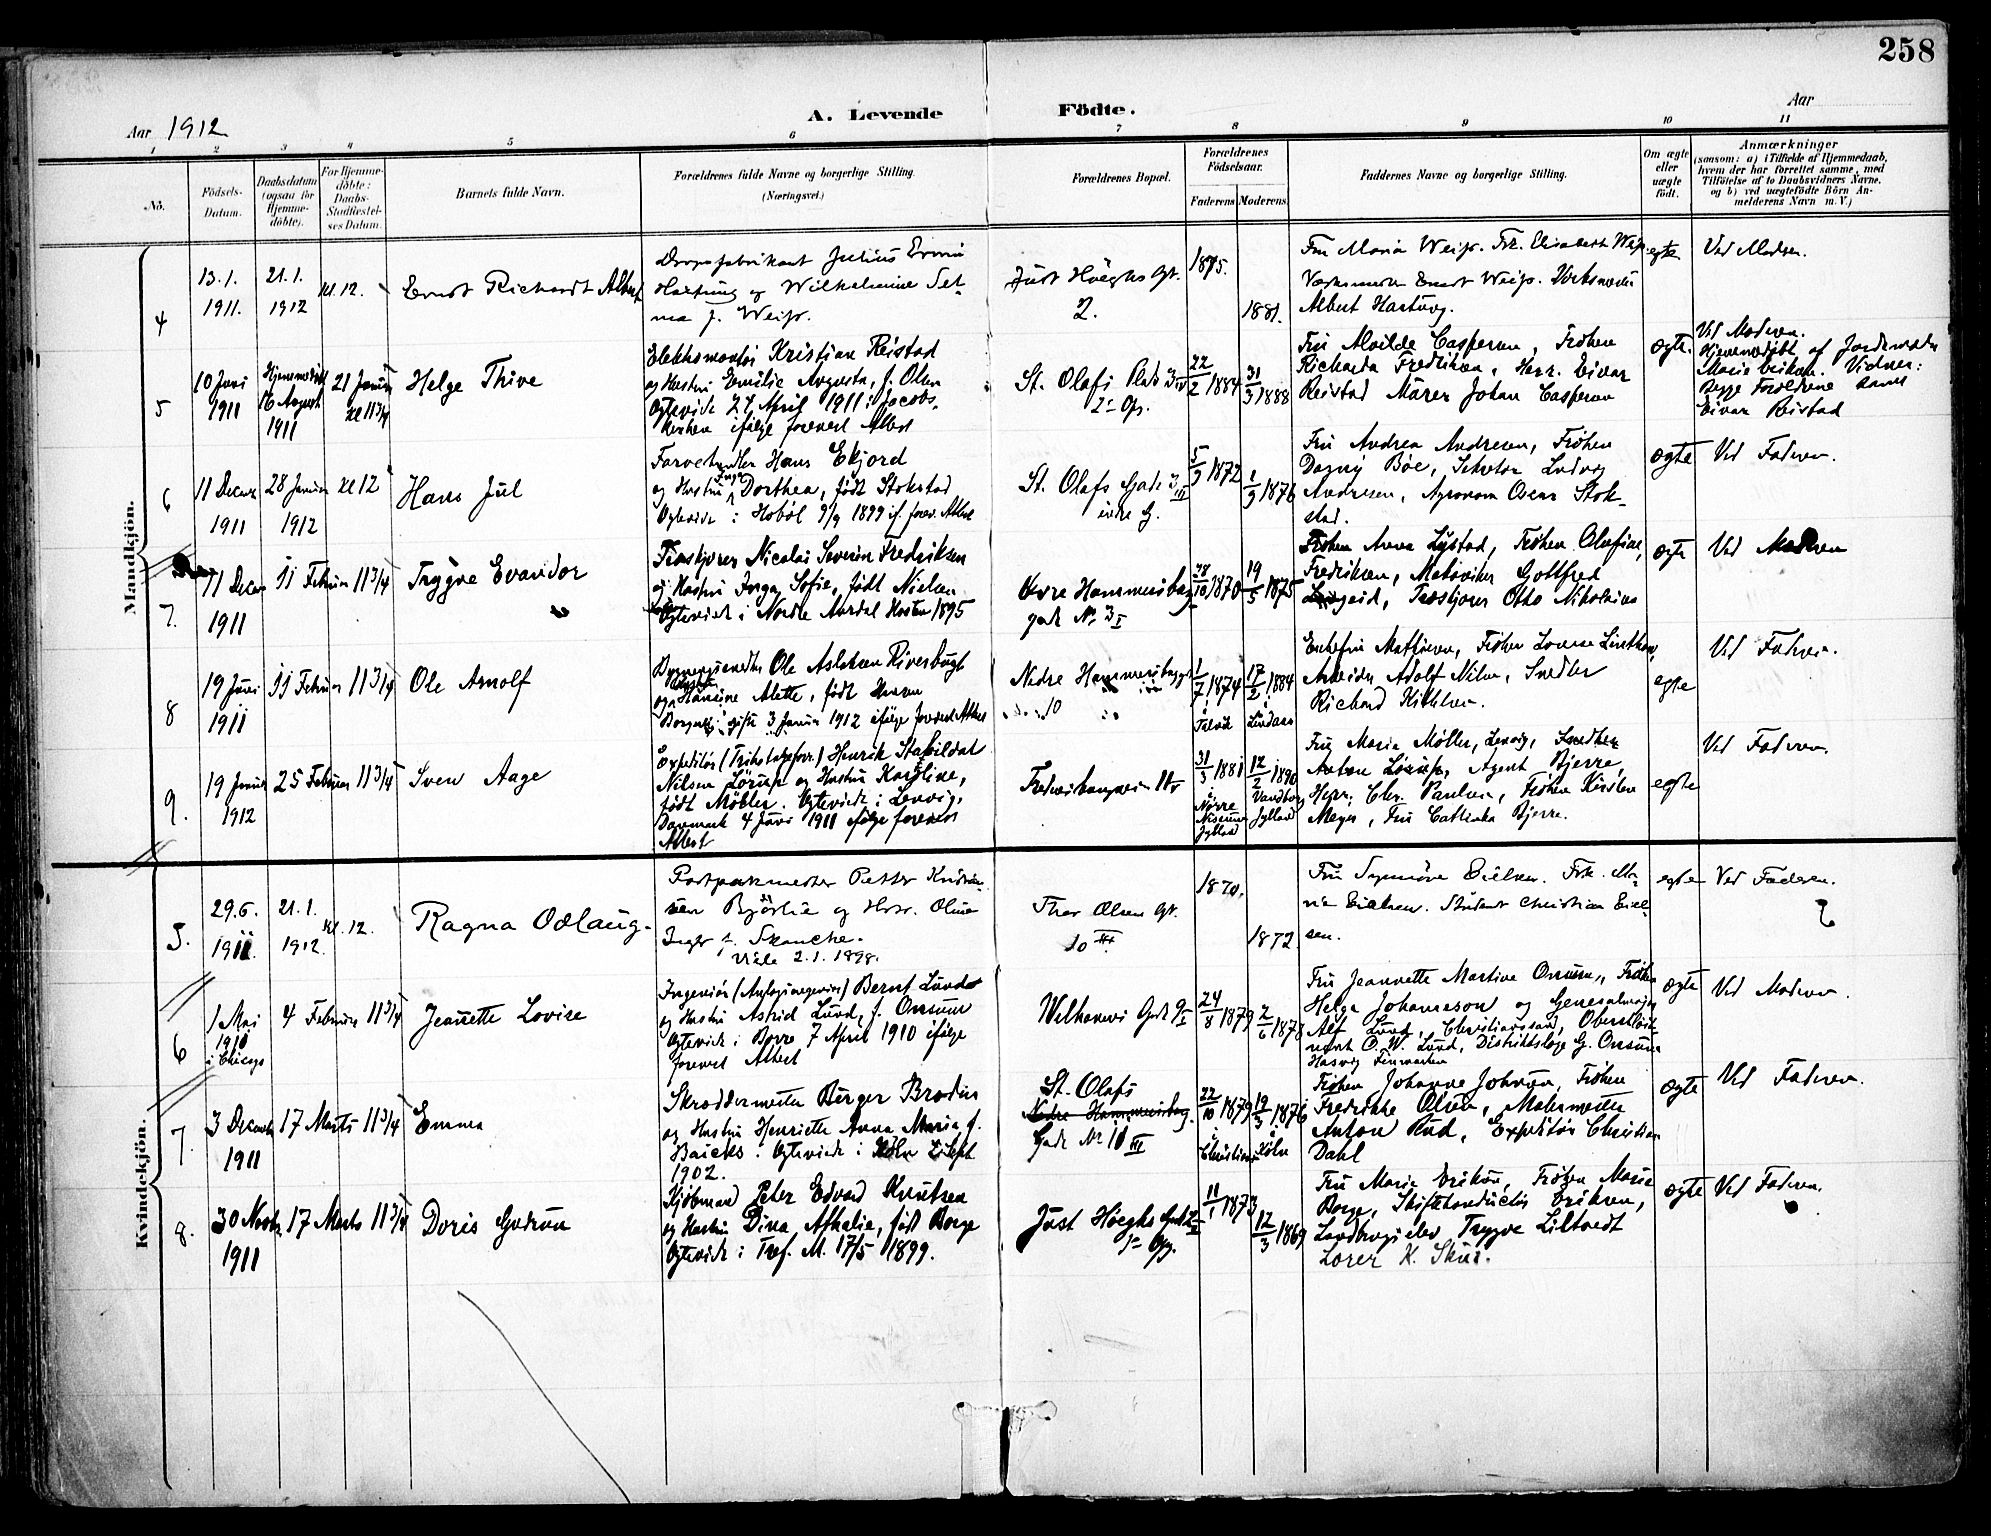 258
Aar 1912
A. Levende Födte.
Aar
1 2 3 4 5 6 7 8 9 10 11
No.
Födsels-Datum.
Daabsdatum (ogsaa for Hjemme-döbte).
For Hjemme-döbte: Daabs-Stadfæstel-ses Datum.
Barnets fulde Navn.
Forældrenes fulde Navne og borgerlige Stilling.
(Næringsvei.)
Forældrenes Bopæl.
Forældrenes Födselsaar.
Faderens Moderens
Faddernes Navne og borgerlige Stilling.
Om ægte eller uægte födt.
Anmærkninger
(saasom: a) i Tilfælde af Hjemmedaab, hvem der har forrettet samme, med Tilföielse af to Daabsvidners Navne, og b) ved uægtefödte Börn An-melderens Navn m. V.)
Mandkjön.
4
13.1.
1911.
21.1.
1912
kl. 12.
Ernst Richardt Albert
Julius Erwin
Hartung og Wilhelmine Sel-
ma f. Weiss.
Just Höeghs Gt.
2.
1875.
1881.
Fru Maria Weiss. Frk. Elisabeth Weiss.
Værkmester Ernst Weiss.
Albert Hartung.
egte
Ved Moderen.
5
10 Juni
1911
Hjemmedöbt
16 August
1911
21 Januar
kl 11 3/4
Helge Thive
Elektromontör Kristian Reistad
og Hustru Emilie Augusta, f. Olsen
Egteviede 27 April 1911 i Jacobs-
kirken ifölge forevist Attest
St. Olafs Gade 3 IV
2- Opg.
22/2 1884
31/3 1888
Fru Alvilde Caspersen, Fröken
Richarda Fredriksen, Herr Eivar
Reistad Murer Johan Caspersen
ægte.
Ved Moderen.
Hjemmedöbt af Jordemoder
Marie Eriksen. Vidner:
Begge Forældrene samt
Eivar Reistad
6
11 Decbr
1911
28 Januar
1912
kl 12
Hans Jul
Farvehandler Hans Ekjord
og Hustru Inga Dorthea, födt Stokstad
Egteviede i Hoböl 9/9 1899 if. forev. Attest
St. Olafs Gade 3 III
indre G.
5/9 1872
1/9 1876
Fru Andrea Andresen, Fröken
Dagny Böe, Sekretær Ludvig
Andresen, Agronom Oscar Stok-
stad.
ægte
Ved Faderen.
7.
11 Decbr
1911
11 Februar 11 3/4
Trygve Evandor
Træskjærer Nicolai Severin Fredriksen
og Hustru Inga Sofie, födt Nielsen
Egteviede i Nordre Aurdal Hösten 1895
Övre Hammersborg
gade No 3 I
28/10 1870
19/5 1875
Fröken Anna Lystad, Fröken Olafine
Fredriksen, Gottfred
Træskjærer Otto Nikolaisen
ægte
Ved Moderen
8
19 Juni
1911
11 Februar 11 3/4
Ole Arnolf
Ole Aslaksen
og Hustru Hansine Alette, födt Hansen
gifte 3 Januar 1912 ifölge forevist Attest
Nedre Hammersborggt
10
1/7 1874
17/2 1884
i
Lindaas
Enkefru Mathisen, Fröken Lovise
Arbeider Adolf Nilsen, Snedker
Richard
egte
Ved Faderen.
9.
19 Januar
1912
25 Februar 11 3/4
Sven Aage
Expeditör Henrik
Nilsen Lörup og Hustru Karoline,
födt Möller. Egteviede i Lemvig,
Danmark 4 Juni 1911 ifölge forevist
Attest
11 IV
31/3 1881
i
Nörre
Nissum
Jylland
12/2 1890
Vandborg
Jylland
Fru Marie Möller, Lemvig, Snedker
Anton Lörup, Agent Bjerre,
Herr Chr. Paulsen, Fröken Kirsten
Meyer, Fru Cathinka Bjerre.
egte
Ved Faderen.
Kvindekjön.
5.
29.6.
1911.
21.1.
1912.
kl. 12.
Ragna Odlaug.
Postpakmester Petter Kristian-
sen Björlie og Hstr. Oline
Inger f. Skanche.
Viede 2.1.1898.
Thor Olsens Gt.
10 III
1870.
1872
Fru Synnöve Eielsen. Frk. Ma-
rie Eielsen. Student Christian Eiel-
sen.
egte
Ved Faderen.
6
1 Mai
1910
i Chicago
4 Februar 11 3/4
Jeanette Lovise
Ingeniör Bernt Lund
og Hustru Astrid Lund, f. Onsum
Egteviede i Borre 7 April 1910 ifölge
forevist Attest
Welhavens Gade 9 I
24/8 1879
2/6 1878
Fru Jeannette Martine Onsum, Fröken
Helga Johannesson og Generalmajor
Alf Lund, Christianssand, Oberstlöit-
nant O. W. Lund, Distriktslæge G. Onsum
Hasvig Finmarken
ægte
Ved Moderen.
7.
3 Decembr
1911
17 Marts 11 3/4
Emma
Skræddermester Birger Brodin
og Hustru Henriette Anna Maria f.
Egteviede i Köln 2 Sept
1902.
St. Olafs
Nedre Hammersborg
Gade No 11 III
22/10 1879
i
Christiania
19/3 1876
i
Köln
Fröken Johanne Johnsen, Fröken
Fredrikke Olsen, Malermester
Anton Rud, Expeditör Christian
Dahl
ægte
Ved Faderen.
8.
30 Novbr
1911
17 Marts 11 3/4
Doris Gudrun
Kjöbmand Peter Edvard Knutsen
og Hustru Dina Athalie, födt Borge
Egteviede i Tref. M. 17/5 1899.
Just Höeghs Gade 2 II
1- Opg.
11/1 1873
12/3 1869
Fru Marie Eriksen, Fröken Marie
Borge, Skiftekonduktör Eriksen,
Landbrugselev Trygve Liltvedt
Lærer K. Skui.
ægte
Ved Faderen.